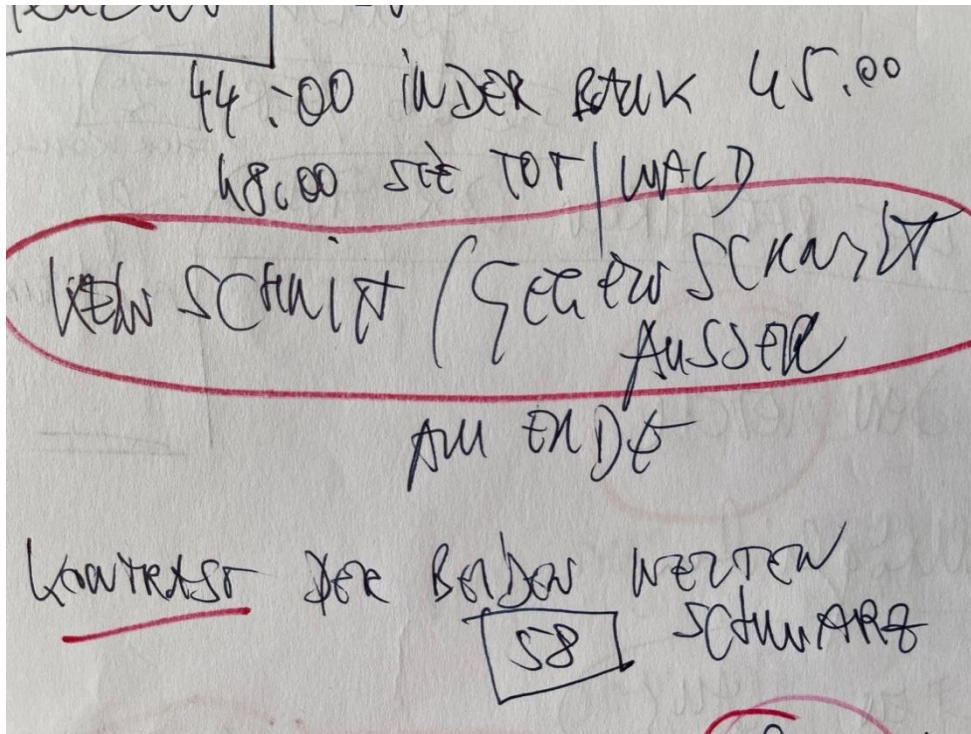 44:00 IN DER BANK 45.00
48.00 SIE TOT | WALD
KEIN SCHNITT / GEGENSCHNITT
AUSSER
AM ENDE
KONTRAST DER BEIDEN WELTEN
58 SCHWARZ